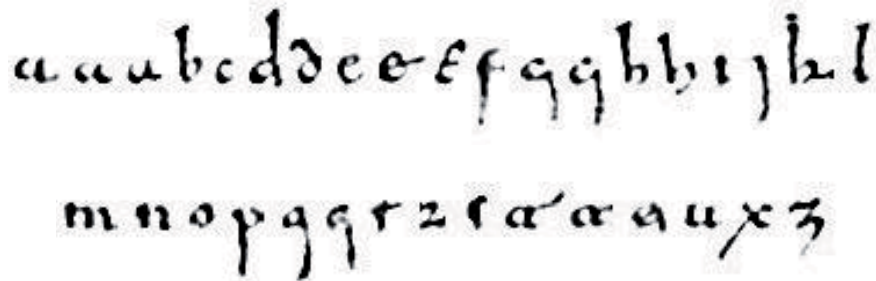 a a a b c d d e e e f g g h h i j k l
m n o p q q r r s t t t u x z